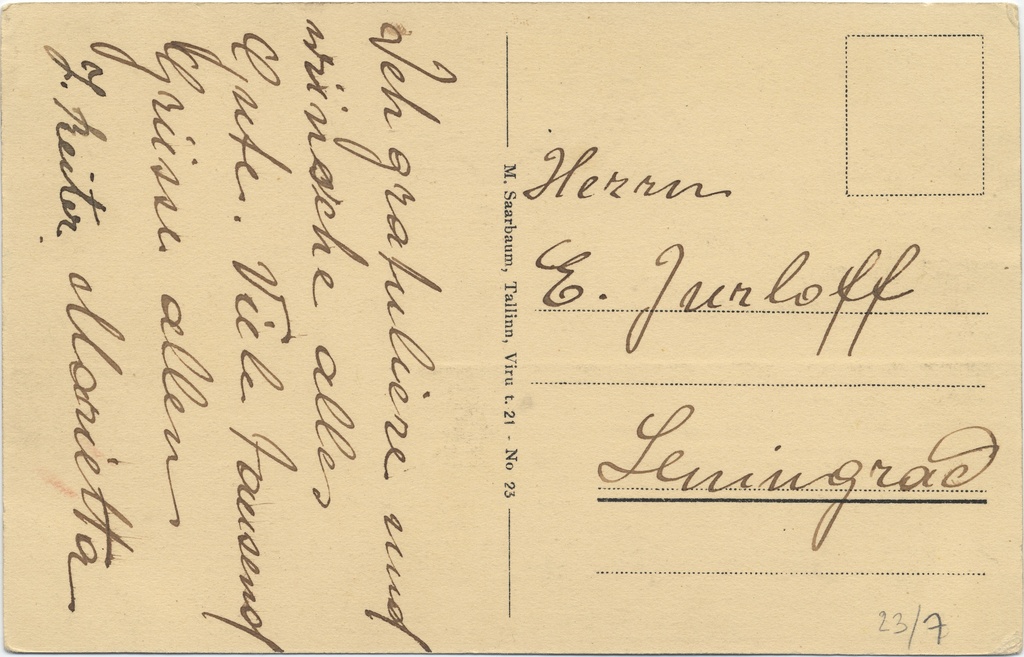 Ich gratuliere und
wünsche alles
Gute. Viele tausend
Grüsse allen
Marietta
J. Reiter.
M. Saarbaum, Tallinn, Viru t. 21 - No 23
Herrn
E. Jurloff
Leningrad
23/7